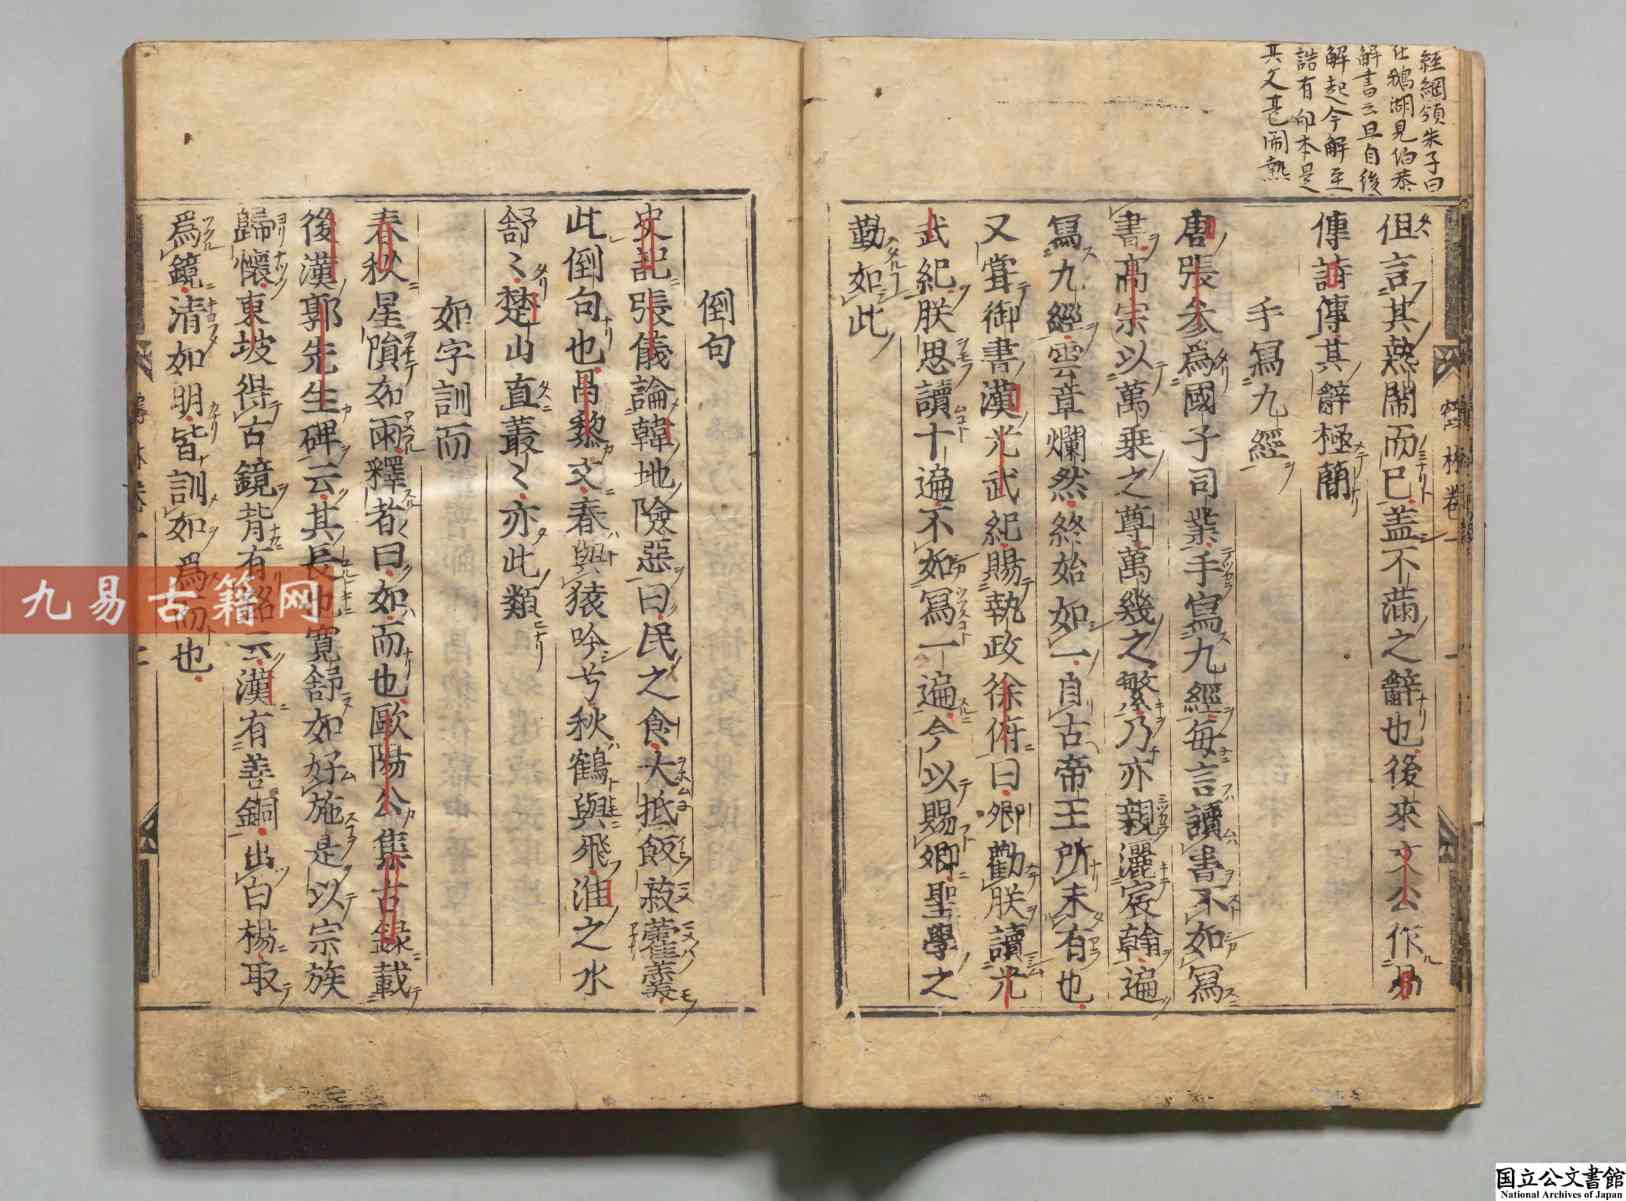 経綱領朱子曰
在鵝湖見伯恭
解書云且自後
解起今解至
誥有印本是
其文甚閙熱
但言其熱鬧而已蓋不滿之之辭也後來文公作易
傳詩傳其辭極蕳
手寫九經
唐張參為國子司業手寫九經每言讀書不如寫
書高宗以萬乗之尊萬幾之繁乃亦親灑宸翰遍
寫九經雲章爛然終始如一自古帝王所未有也
又嘗御書漢光武紀賜執政徐俯曰卿勸朕讀光
武紀朕思讀十遍不如寫一遍今以賜卿聖學之
勤如此
倒句
史記張儀論韓地險惡曰民之食大抵飯菽藿羹
此倒句也昌黎文春與猿吟兮秋鶴與飛淮之水
舒々楚山直叢々亦此類
如字訓而
春秋星隕如雨釋者曰如而也歐陽公集古錄載
後漢郭先生碑云其長也寛舒如好施是以宗族
歸懷東坡得古鏡背有銘云漢有善銅出白楊取
為鏡清如明皆訓如為而也
九易古籍网
国立公文書館
National Archives of Japan